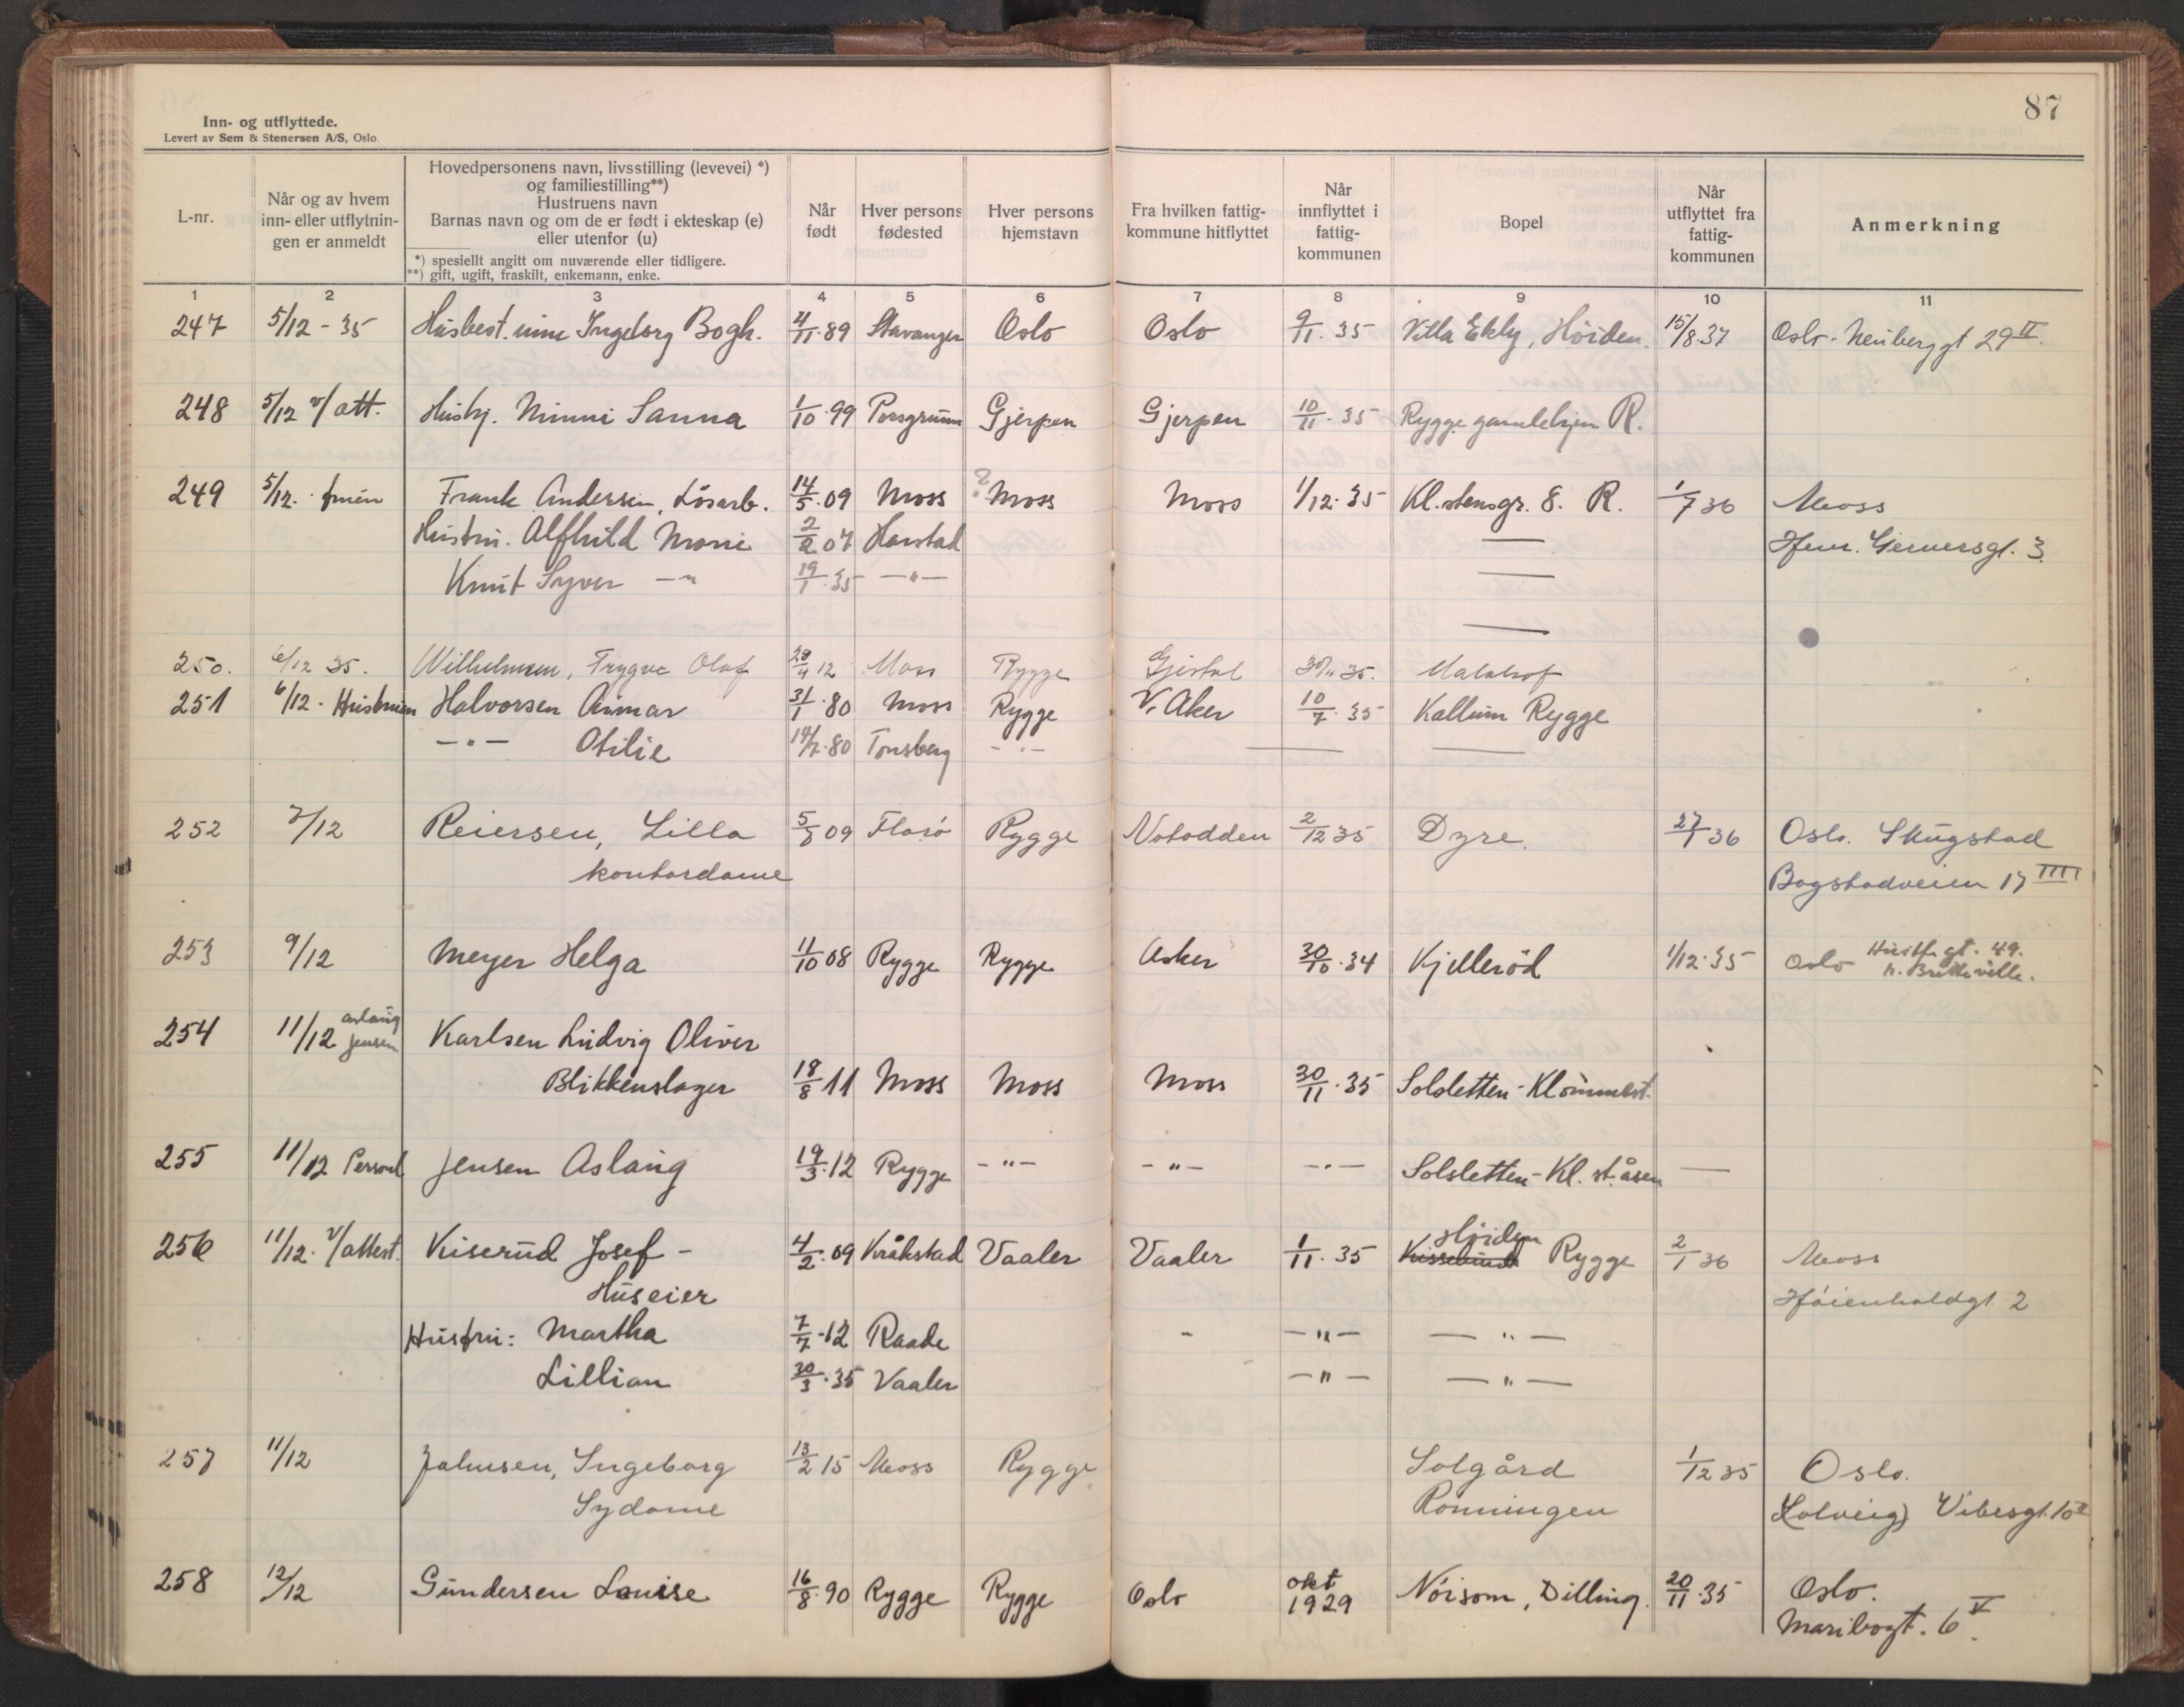 87
Inn- og utflyttede.
Levert av Sem & Stenersen A/S, Oslo.
L-nr. | Når og av hvem inn- eller utflytningen er anmeldt | Hovedpersonens navn, livsstilling (levevei) *) og familiestilling**) Hustruens navn Barnas navn og om de er født i ekteskap (e) eller utenfor (u) | Når født | Hver persons fødested | Hver persons hjemstavn | Fra hvilken fattigkommune hitflyttet | Når innflyttet i fattigkommunen | Bopel | Når utflyttet fra fattigkommunen | Anmerkning
*) spesiellt angitt om nuværende eller tidligere.
**) gift, ugift, fraskilt, enkemann, enke.
1 2 3 4 5 6 7 8 9 10 11
247 5/12 - 35 Husbest.inne Ingeborg Bogh. 4/11.89 Stavanger Oslo Oslo 9/11.35 Villa Ekly, Höiden. 15/8.37 Oslo - Neuberggt 29 II.
248 5/12 v/att. Husbj. Ninni Sanna 1/10.99 Porsgrunn Gjerpen Gjerpen 10/11.35 Rygge gamlehjem R.
249 5/12. Frank Andersen, Lösarb. 14/5.09 Moss ? Moss Moss 1/12.35 Kl.stensgr. 8. R. 1/7 36 Moss
Hustru. Alfhild Marie 2/2 07 Harstad — Hem. Gernersgt. 3.
Knut Syver —"— 19/1.35 —"— —
—
250. 6/12 35. Wilhelmsen, Trygve Olaf 4 12 Moss Rygge 30/11 35. Malakof
251 6/12. Hustruen Halvorsen Aimar 31/1.80 Moss Rygge V. Aker 10/7.35 Kallum Rygge
—"— Otilie 80 Tønsberg —"— — —
252 7/12 Reiersen, Lilla 5/8 09 Florö Rygge Notodden 2/12 35 Dyre. 27/1 36 Oslo. Skugstad
kontordame Bogstadveien 17 IIII
253 9/12 Meyer Helga 11/10 08 Rygge Rygge Asker 30/10.34 Kjelleröd 1/12.35 Oslo Huitf. gt. 49.
254 11/12 Aslaug Jensen Karlsen Ludvig Oliver
Blikkenslager 18/8 11 Moss Moss Moss 30/11.35 Solsletten - Klommest.
255 11/12 Personl Jensen Aslaug 19/3.12 Rygge —"— —"— —"— Solsletten - Kl. st.åsen —
256 11/12. v/attest. Kiserud Josef - 4/2.09 Kråkstad Vaaler Vaaler 1/11.35 Höiden Rygge 2/1 36 Moss
Huseier Höienhaldgt. 2
Hustru: Martha 7/7-12 Raade - —"— —"—
Lillian 30/3.35 Vaaler —"— —"—
257 11/12 Johnsen, Ingeborg 13/2 15 Moss Rygge Solgård 1/12 35 Oslo.
Sydame Rönningen (Solveig) Vibesgt. 10 II
258 12/12 Gundersen Louise 16/8.90 Rygge Rygge Oslo okt 1929 Nöisom, Dilling. 20/11.35 Oslo.
Maribogt. 6 V.